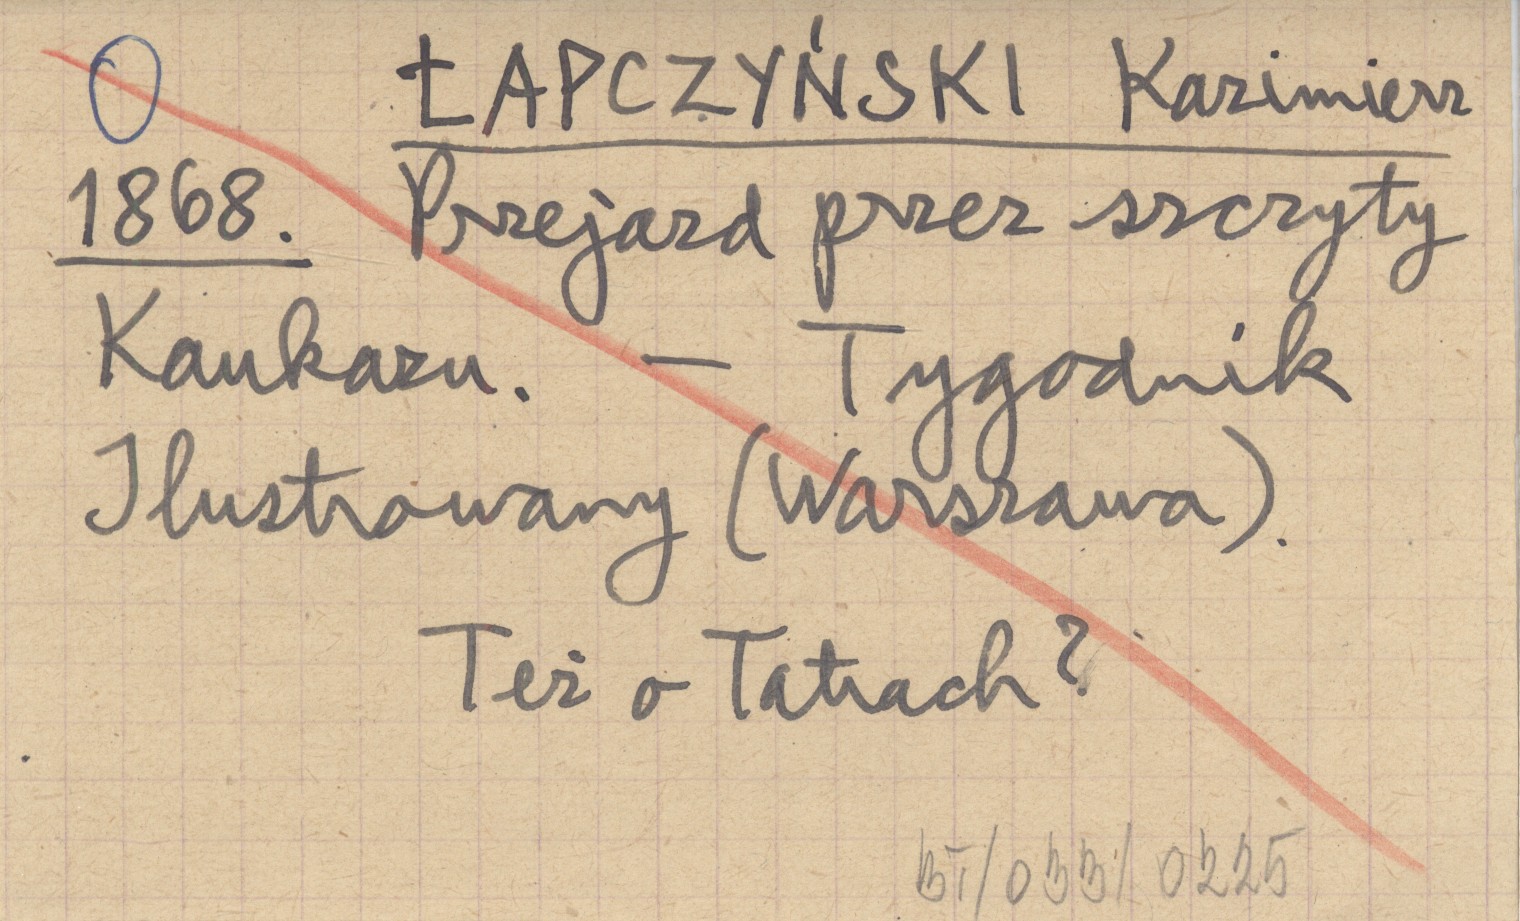 ŁAPCZYŃSKI Kazimierz
1868. Przejazd przez szczyty
Kaukazu. — Tygodnik
Ilustrowany (Warszawa).
Też o Tatrach?
BT/033/0225